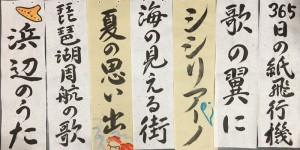 365日の紙飛行機
歌の翼に
シシリアーノ
海の見える街
夏の思い出
琵琶湖周航の歌
浜辺のうた